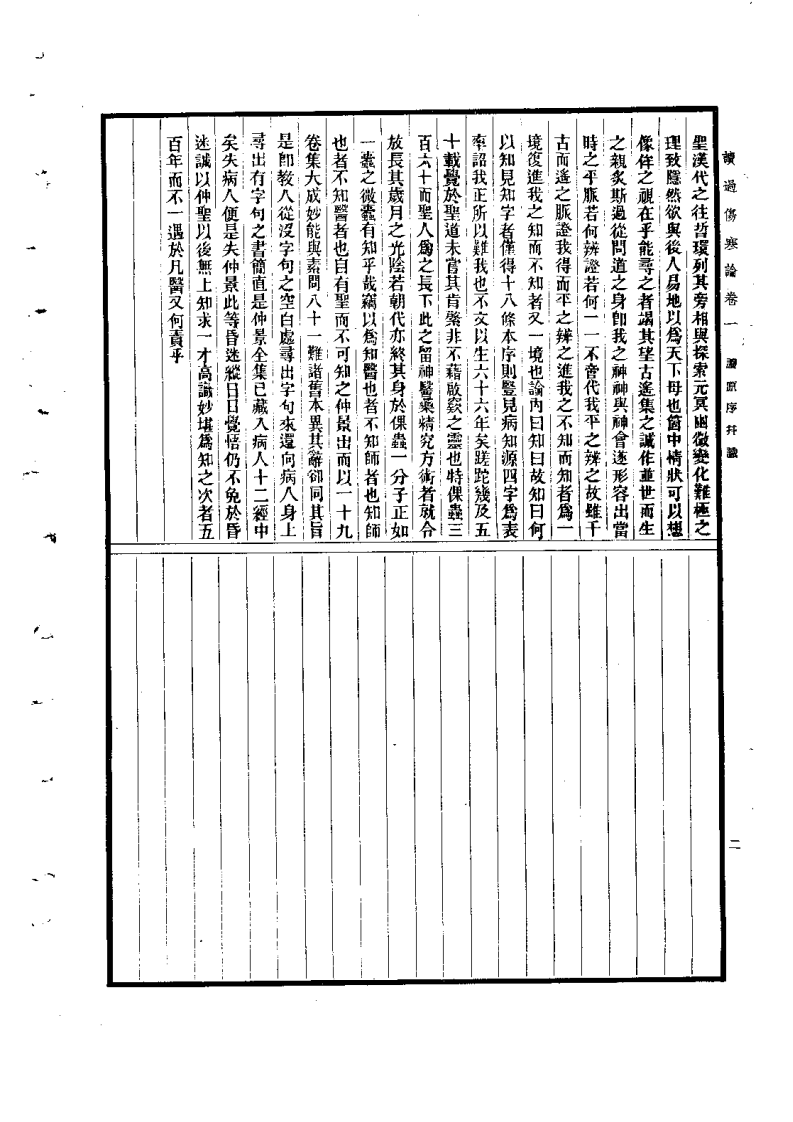 讀過傷寒論卷一 讀原序幷識
二
聖漢代之往哲環列其旁相與探索元冥幽微變化難極之
理致隱然欲與後人易地以爲天下母也箇中情狀可以想
像倅之視在乎能尋之者謁其望古遙集之誠作並世而生
之親炙斯過從問道之身卽我之神神與神會遂形容出當
時之平脈若何辨證若何一一不啻代我平之辨之故雖千
古而遙之脈證我得而平之辨之進我之不知而知者爲一
境復進我之知而不知者又一境也論內曰知曰故知曰何
以知見知字者僅得十八條本序則豎見病知源四字爲表
率詔我正所以難我也不文以生六十六年矣蹉跎幾及五
十載覺於聖道未嘗其肯綮非不藉啟竅之靈也特倮蟲三
百六十而聖人爲之長下此之留神醫藥精究方術者就令
放長其歲月之光陰若朝代亦終其身於倮蟲一分子正如
一蠹之微蠹有知乎哉竊以爲知醫也者不知師者也知師
也者不知醫者也自有聖而不可知之仲景出而以一十九
卷集大成妙能與素問八十一難諸舊本異其辭卻同其旨
是卽教人從沒字句之空白處尋出字句來還向病人身上
尋出有字句之書簡直是仲景全集已藏入病人十二經中
矣失病人便是失仲景此等昏迷縱日日覺悟仍不免於昏
迷誠以仲聖以後無上知求一才高識妙堪爲知之次者五
百年而不一遇於凡醫又何責乎